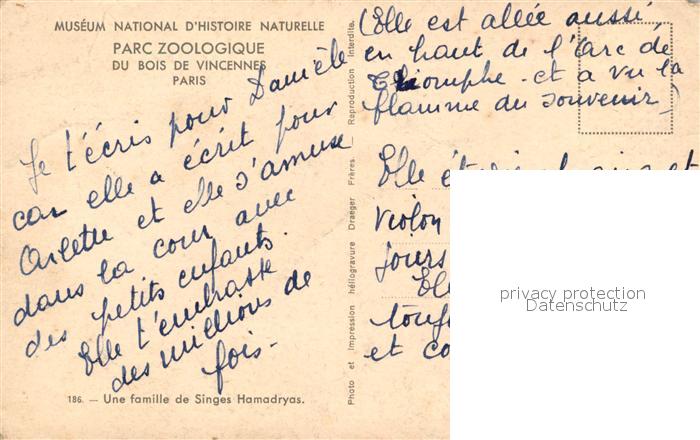 MUSÉUM NATIONAL D'HISTOIRE NATURELLE
PARC ZOOLOGIQUE
DU BOIS DE VINCENNES
PARIS
Je t'écris pour Danièle
car elle a écrit pour
Arlette et elle s'amuse
dans la cour avec
des petits enfants.
Elle t'embrasse
des millions de
fois.
186. — Une famille de Singes Hamadryas.
Photo et Impression héliogravure Draeger Frères. — Reproduction interdite.
(Elle est allée aussi
en haut de l'Arc de
Triomphe et a vu la
flamme du souvenir)
Elle et
violon
jours
Elle
et
privacy protection
Datenschutz